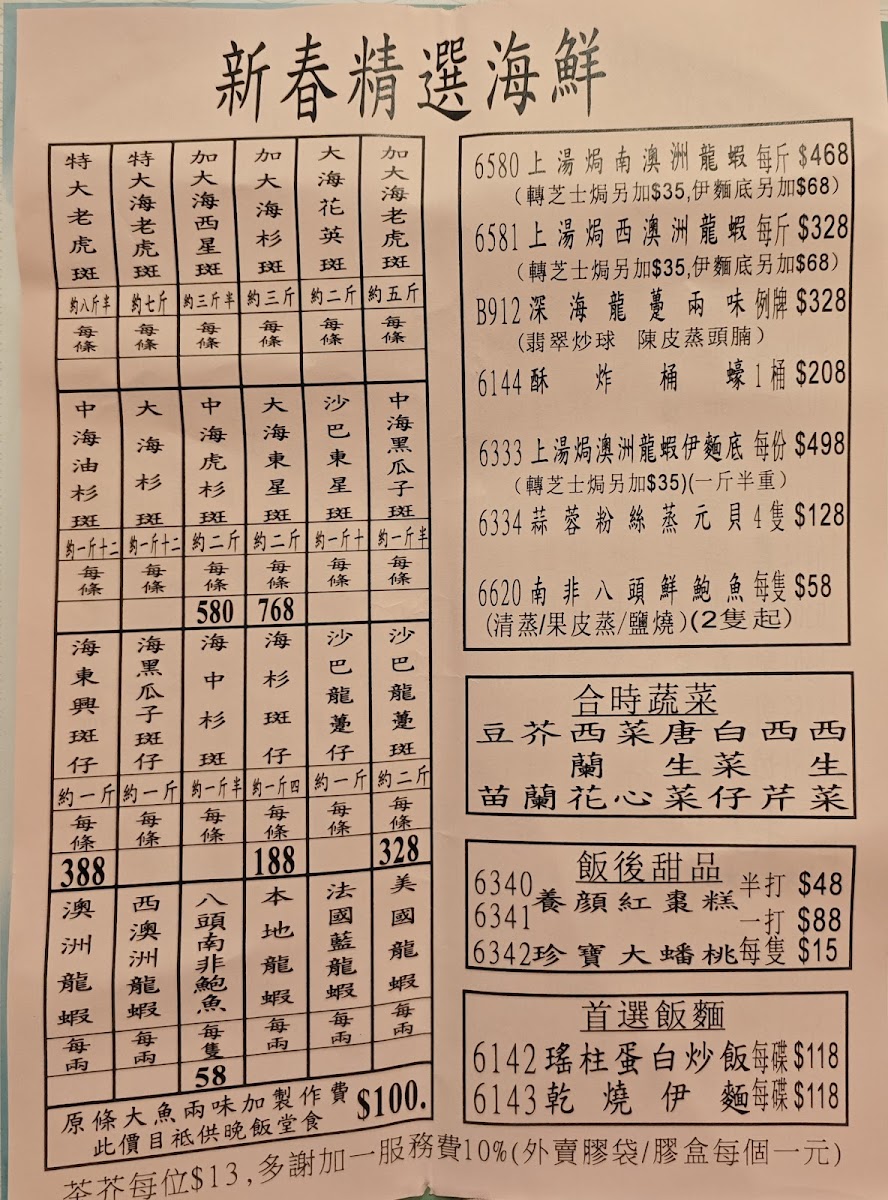 新春精選海鮮
特大老虎斑 特大海老虎斑 加大海西星斑 加大海杉斑 大海花英斑 加大海老虎斑
約八斤半 約七斤 約三斤半 約三斤 約二斤 約五斤
每條 每條 每條 每條 每條 每條
中海油杉斑 大海杉斑 中海虎杉斑 大海東星斑 沙巴東星斑 中海黑瓜子斑
約一斤十二 約一斤十二 約二斤 約二斤 約一斤十 約一斤半
每條 每條 每條 每條 每條 每條
580 768
海東興斑仔 海黑瓜子斑仔 海中杉斑 海杉斑仔 沙巴龍躉仔 沙巴龍躉斑
約一斤 約一斤 約一斤半 約一斤四 約一斤 約二斤
每條 每條 每條 每條 每條 每條
388 188 328
澳洲龍蝦 西澳洲龍蝦 八頭南非鮑魚 本地龍蝦 法國藍龍蝦 美國龍蝦
每兩 每兩 每隻 每兩 每兩 每兩
58
原條大魚兩味加製作費 $100.
此價目祗供晚飯堂食
6580 上湯焗南澳洲龍蝦 每斤 $468
(轉芝士焗另加$35,伊麵底另加$68)
6581 上湯焗西澳洲龍蝦 每斤 $328
(轉芝士焗另加$35,伊麵底另加$68)
B912 深海龍躉兩味 例牌 $328
(翡翠炒球 陳皮蒸頭腩)
6144 酥炸桶蠔 1桶 $208
6333 上湯焗澳洲龍蝦伊麵底 每份 $498
(轉芝士焗另加$35)(一斤半重)
6334 蒜蓉粉絲蒸元貝 4隻 $128
6620 南非八頭鮮鮑魚 每隻 $58
(清蒸/果皮蒸/鹽燒)(2隻起)
合時蔬菜
豆苗 芥蘭 西蘭花 菜心 唐生菜 白菜仔 西芹 西生菜
飯後甜品
6340 養顏紅棗糕 半打 $48
6341 一打 $88
6342 珍寶大蟠桃 每隻 $15
首選飯麵
6142 瑤柱蛋白炒飯 每碟 $118
6143 乾燒伊麵 每碟 $118
茶芥每位$13,多謝加一服務費10%(外賣膠袋/膠盒每個一元)